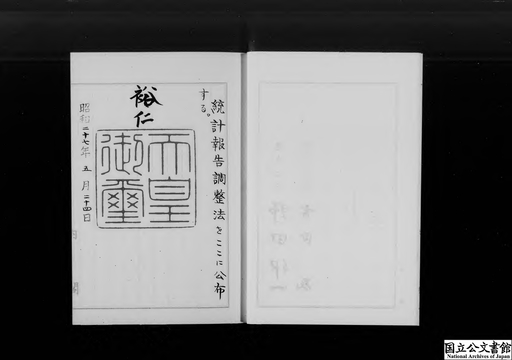 統計報告調整法をここに公布
する。
裕仁
天皇
御璽
昭和二十七年五月二十四日
国立公文書館
National Archives of Japan